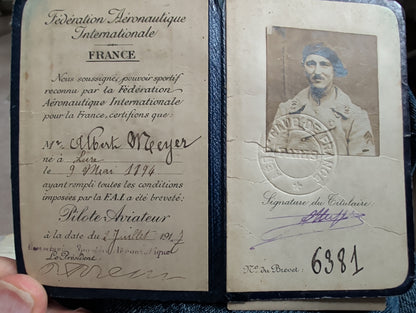 Fédération Aéronautique
Internationale
FRANCE
Nous soussignés, pouvoir sportif
reconnu par la Fédération
Aéronautique Internationale
pour la France, certifions que:
Mr. Albert Meyer
né à Lure
le 9 Mai 1894
ayant rempli toutes les conditions
imposées par la F.A.I. a été breveté:
Pilote-Aviateur
à la date du 2 Juillet 1917
Le Président:
Signature du Titulaire
No. du Brevet: 6381